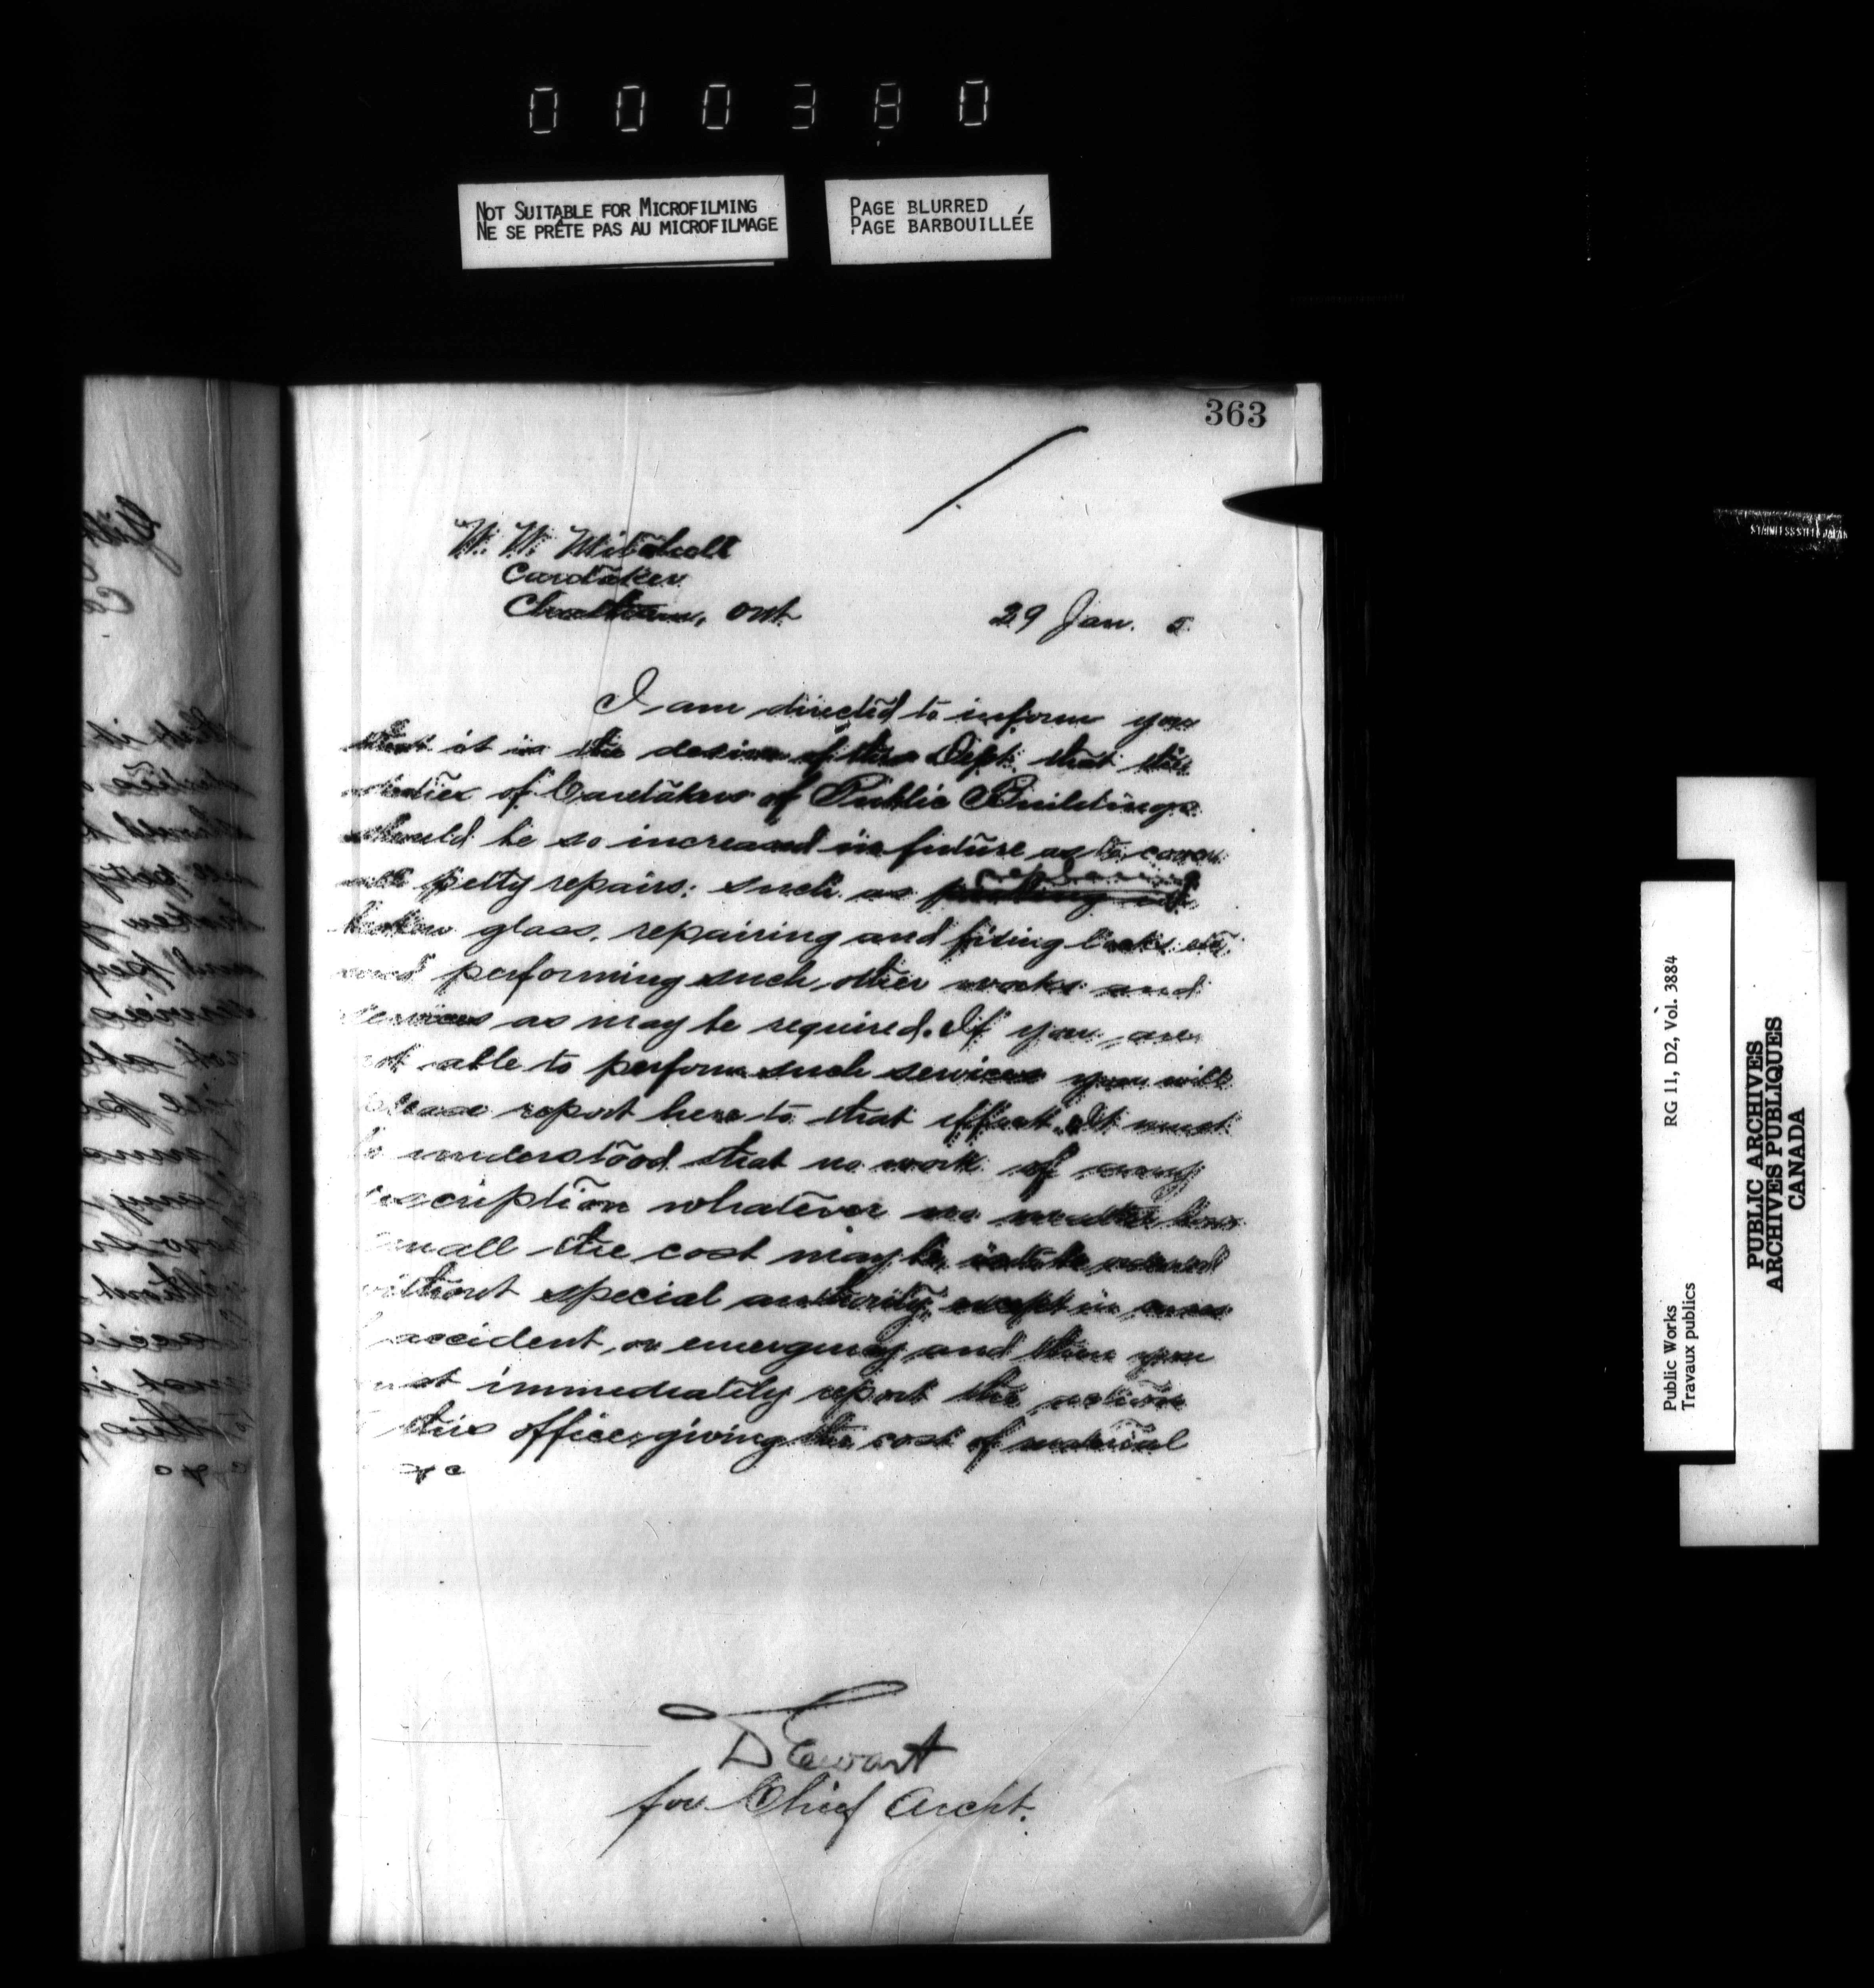 000380
NOT SUITABLE FOR MICROFILMING
NE SE PRÊTE PAS AU MICROFILMAGE
PAGE BLURRED
PAGE BARBOUILLÉE
363
W. W. Mitchell
Caretaker
Chatham, Ont.
29 Jan. 5
I am directed to inform you
that it is the desire of the Dept. that the
duties of Caretakers of Public Buildings
should be so increased in future as to cover
all petty repairs: such as replacing
broken glass, repairing and fixing locks etc
and performing such other works and
services as may be required. If you are
not able to perform such services you will
please report here to that effect. It must
be understood that no work of any
description whatever no matter how
small the cost may be, is to be ordered
without special authority, except in cases
accident, or emergency and then you
must immediately report the action
this office, giving the cost of material
&c
D Ewart
for Chief Archt.
Public Works
Travaux publics
RG 11, D2, Vol. 3884
PUBLIC ARCHIVES
ARCHIVES PUBLIQUES
CANADA